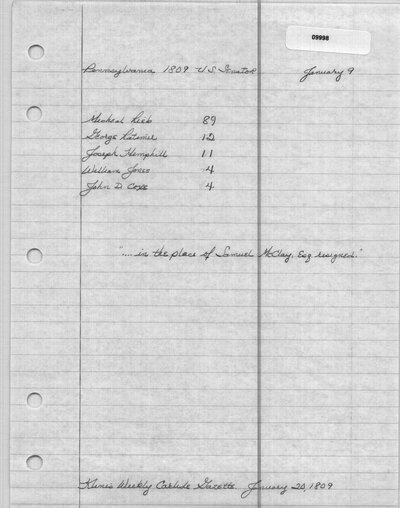 09998
Pennsylvania 1809 U.S. Senator January 9
Michael Leib 89
George Latimer 12
Joseph Hemphill 11
William Jones 4
John D. Coxe 4
".... in the place of Samuel McClay, Esq resigned."
Kline's Weekly Carlisle Gazette. January 20, 1809